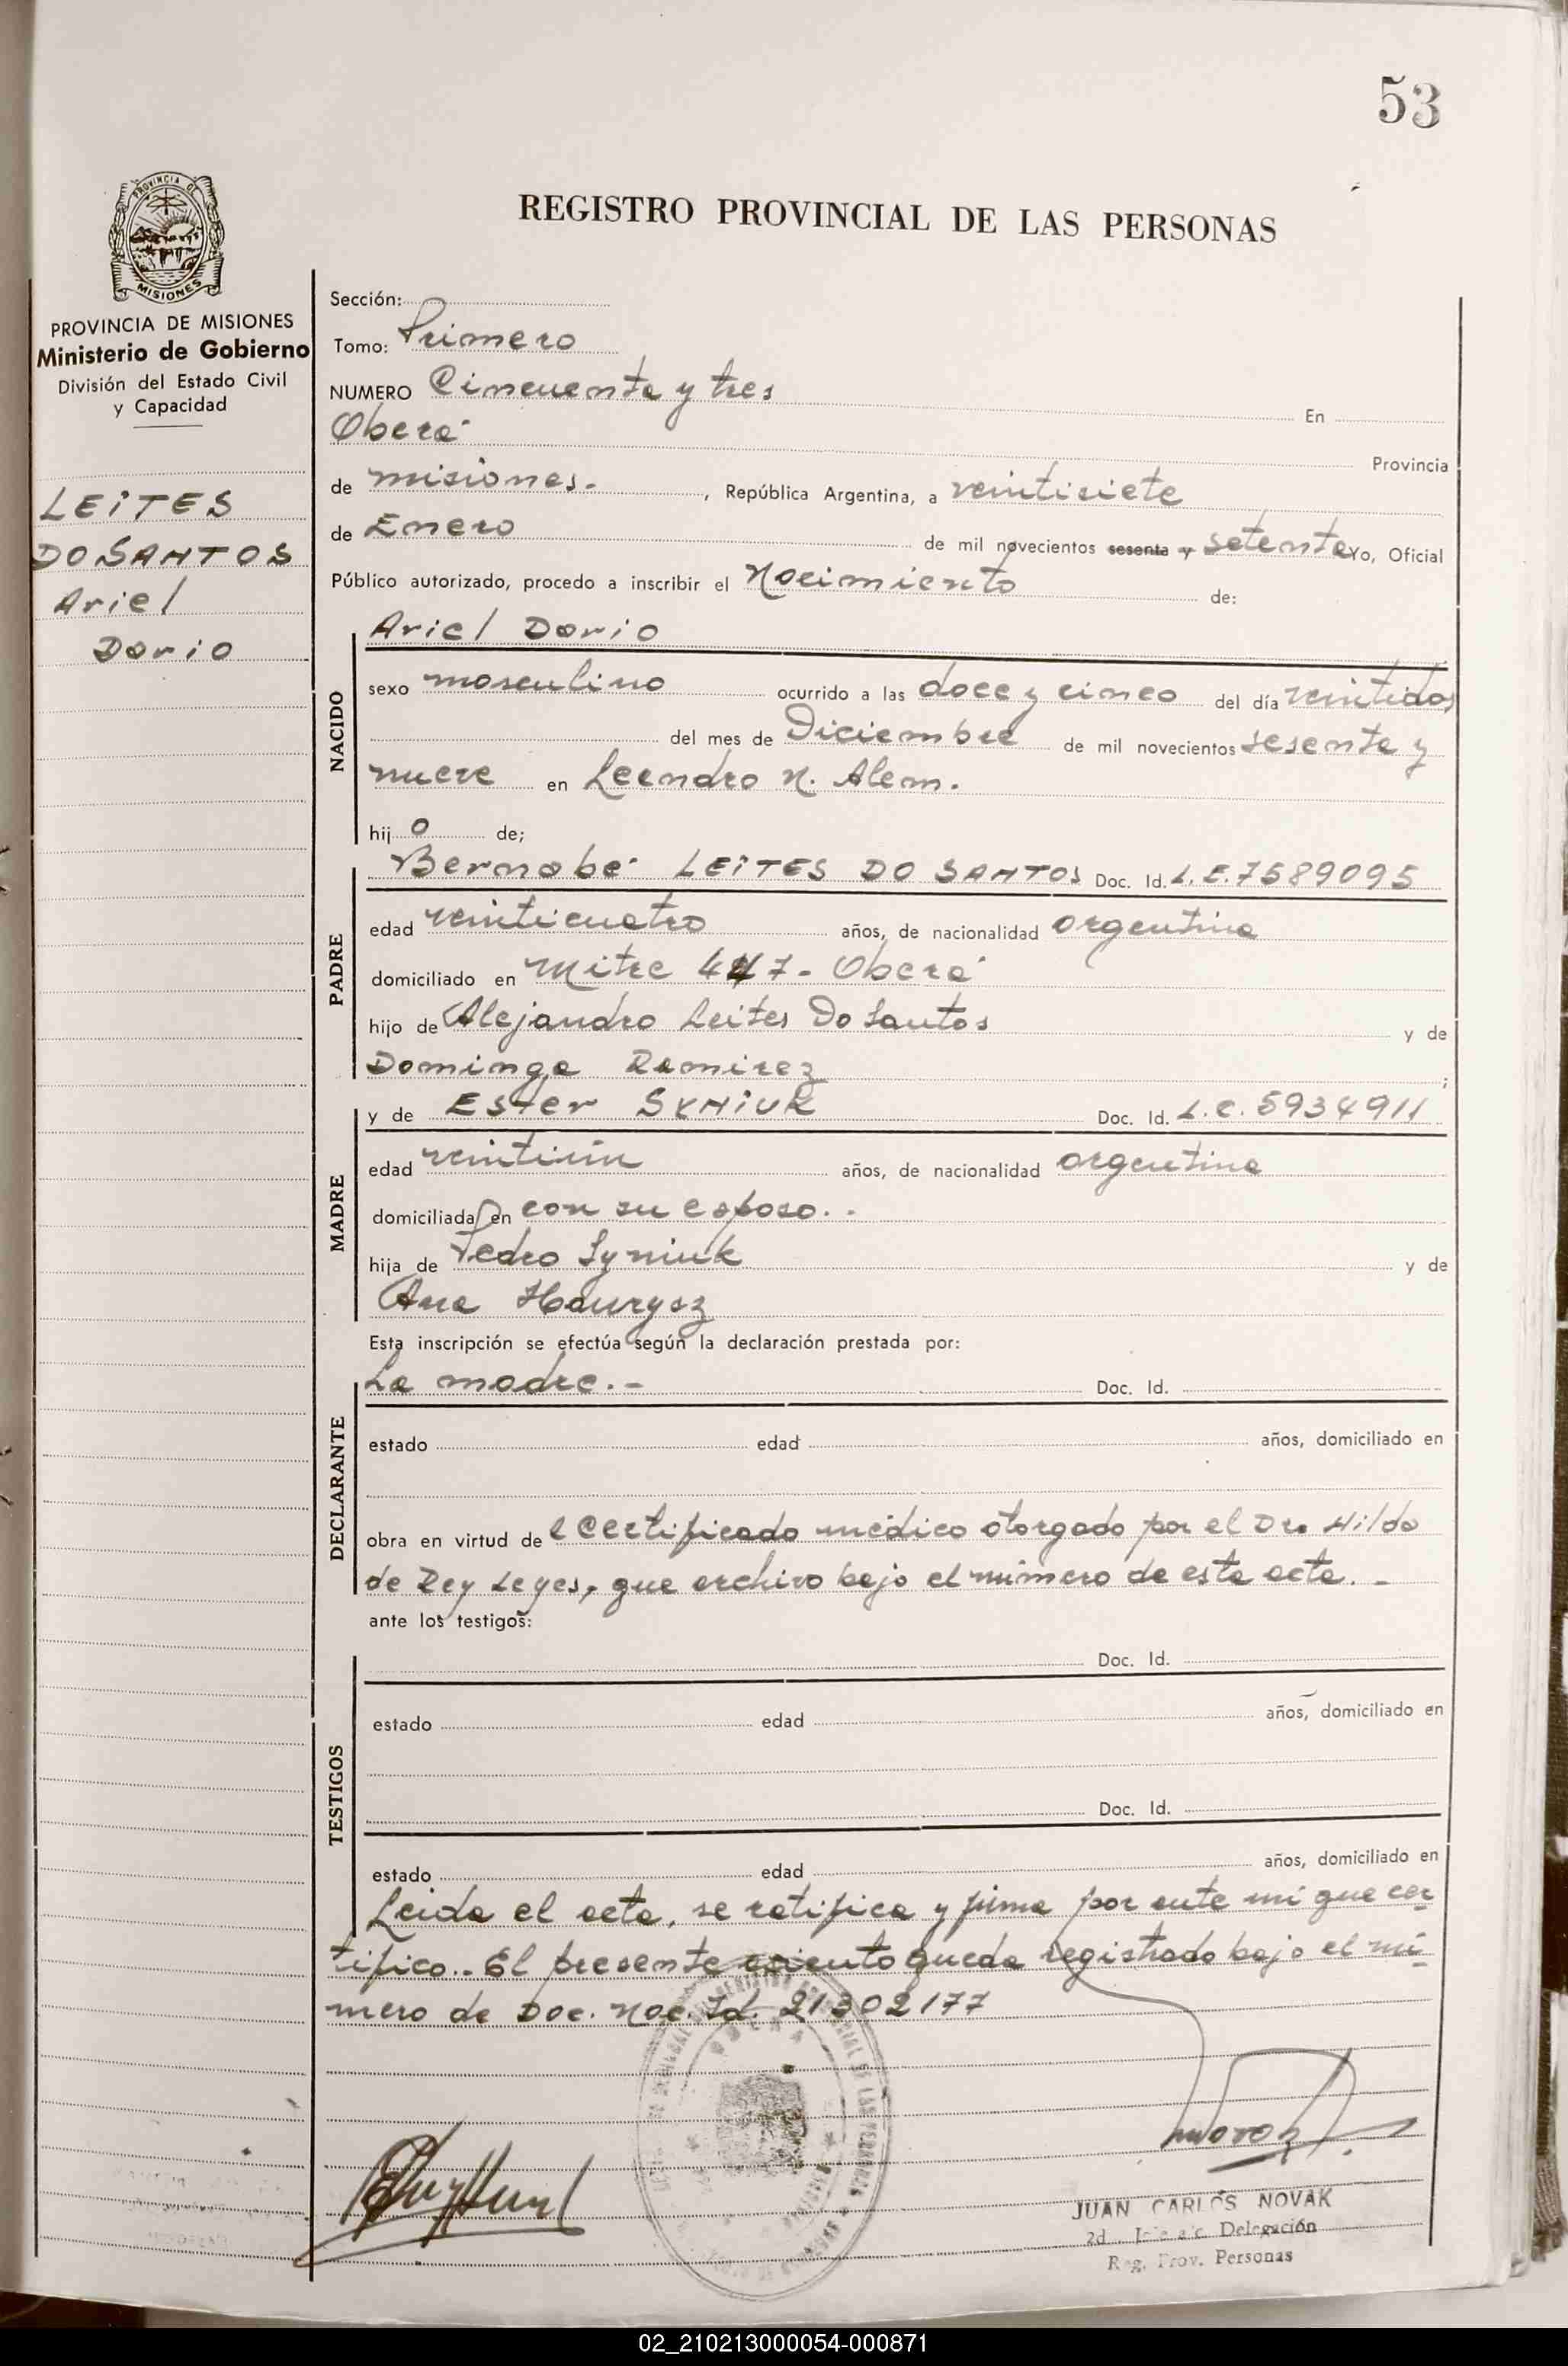 53
PROVINCIA DE
MISIONES
REGISTRO PROVINCIAL DE LAS PERSONAS
PROVINCIA DE MISIONES
Ministerio de Gobierno
División del Estado Civil
y Capacidad
LEiTES
DO SANTOS
Ariel
Dario
Sección:
Tomo: Primero
NUMERO Cincuenta y tres En
Oberá
Provincia
de misiones.- , República Argentina, a veintisiete
de Enero de mil novecientos sesenta y setenta Yo, Oficial
Público autorizado, procedo a inscribir el Nacimiento de:
Ariel Dario
NACIDO
sexo masculino ocurrido a las doce y cinco del día veintidos
del mes de Diciembre de mil novecientos sesenta y
nueve en Leandro N. Alem.
hij o de;
Bernabé LEiTES DO SANTOS Doc. Id. L.E.7589095
PADRE
edad veinticuatro años, de nacionalidad argentina
domiciliado en Mitre 447- Oberá
hijo de Alejandro Leites Do Santos y de
Dominga Ramirez ;
y de Ester SYNiUK Doc. Id. L.C. 5934911
MADRE
edad veintiún años, de nacionalidad argentina
domiciliada en con su esposo..
hija de Pedro Syniuk y de
Ana
Esta inscripción se efectúa según la declaración prestada por:
La madre.- Doc. Id.
DECLARANTE
estado edad años, domiciliado en
obra en virtud de l certificado médico otorgado por el Dra Hilda
de Rey Leyes, que archivo bajo el número de esta acta.-
ante los testigos:
Doc. Id.
TESTIGOS
estado edad años, domiciliado en
Doc. Id.
estado edad años, domiciliado en
Leida el acta, se ratifica y firma por ante mi que cer
tifico.- El presente asiento queda registrado bajo el nú
mero de Doc. Nac. Id. 21302177
JUAN CARLOS NOVAK
2d. Jefe a/c. Delegación
Reg. Prov. Personas
02_210213000054-000871